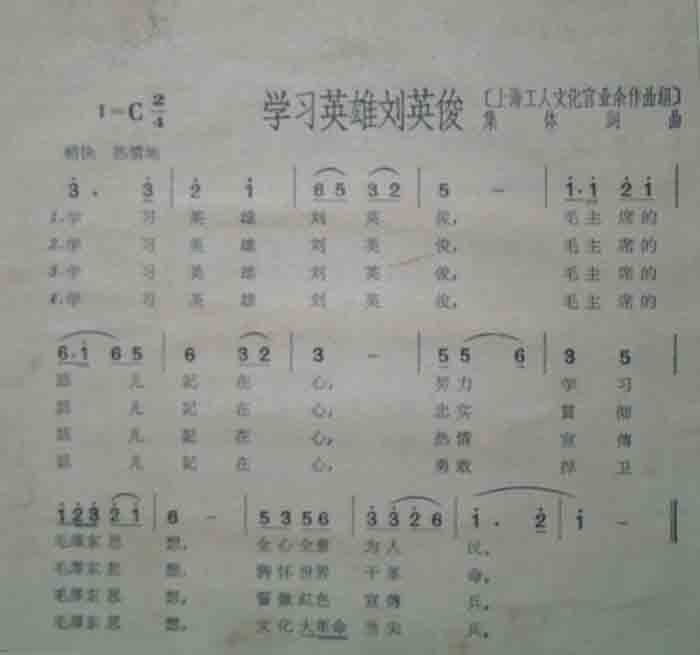 1=C 2/4
学习英雄刘英俊
〔上海工人文化宫业余作曲组〕
集体词曲
稍快 热情地
3 . 3 | 2 1 | 6 5 3 2 | 5 - | 1·1 2 1 |
1.学 习 英 雄 刘 英 俊, 毛主席的
2.学 习 英 雄 刘 英 俊, 毛主席的
3.学 习 英 雄 刘 英 俊, 毛主席的
4.学 习 英 雄 刘 英 俊, 毛主席的
6·1 6 5 | 6 3 2 | 3 - | 5 5 6 | 3 5 |
話 儿 記 在 心, 努力 学 习
話 儿 記 在 心, 忠实 貫 彻
話 儿 記 在 心, 热情 宣 傳
話 儿 記 在 心, 勇敢 捍 卫
1 2 3 2 1 | 6 - | 5 3 5 6 | 3 3 2 6 | 1 . 2 | 1 - ‖
毛澤东思 想, 全心全意 为人 民,
毛澤东思 想, 胸怀世界 干革 命,
毛澤东思 想, 紅色 宣傳 兵,
毛澤东思 想, 文化大革命 当尖 兵,